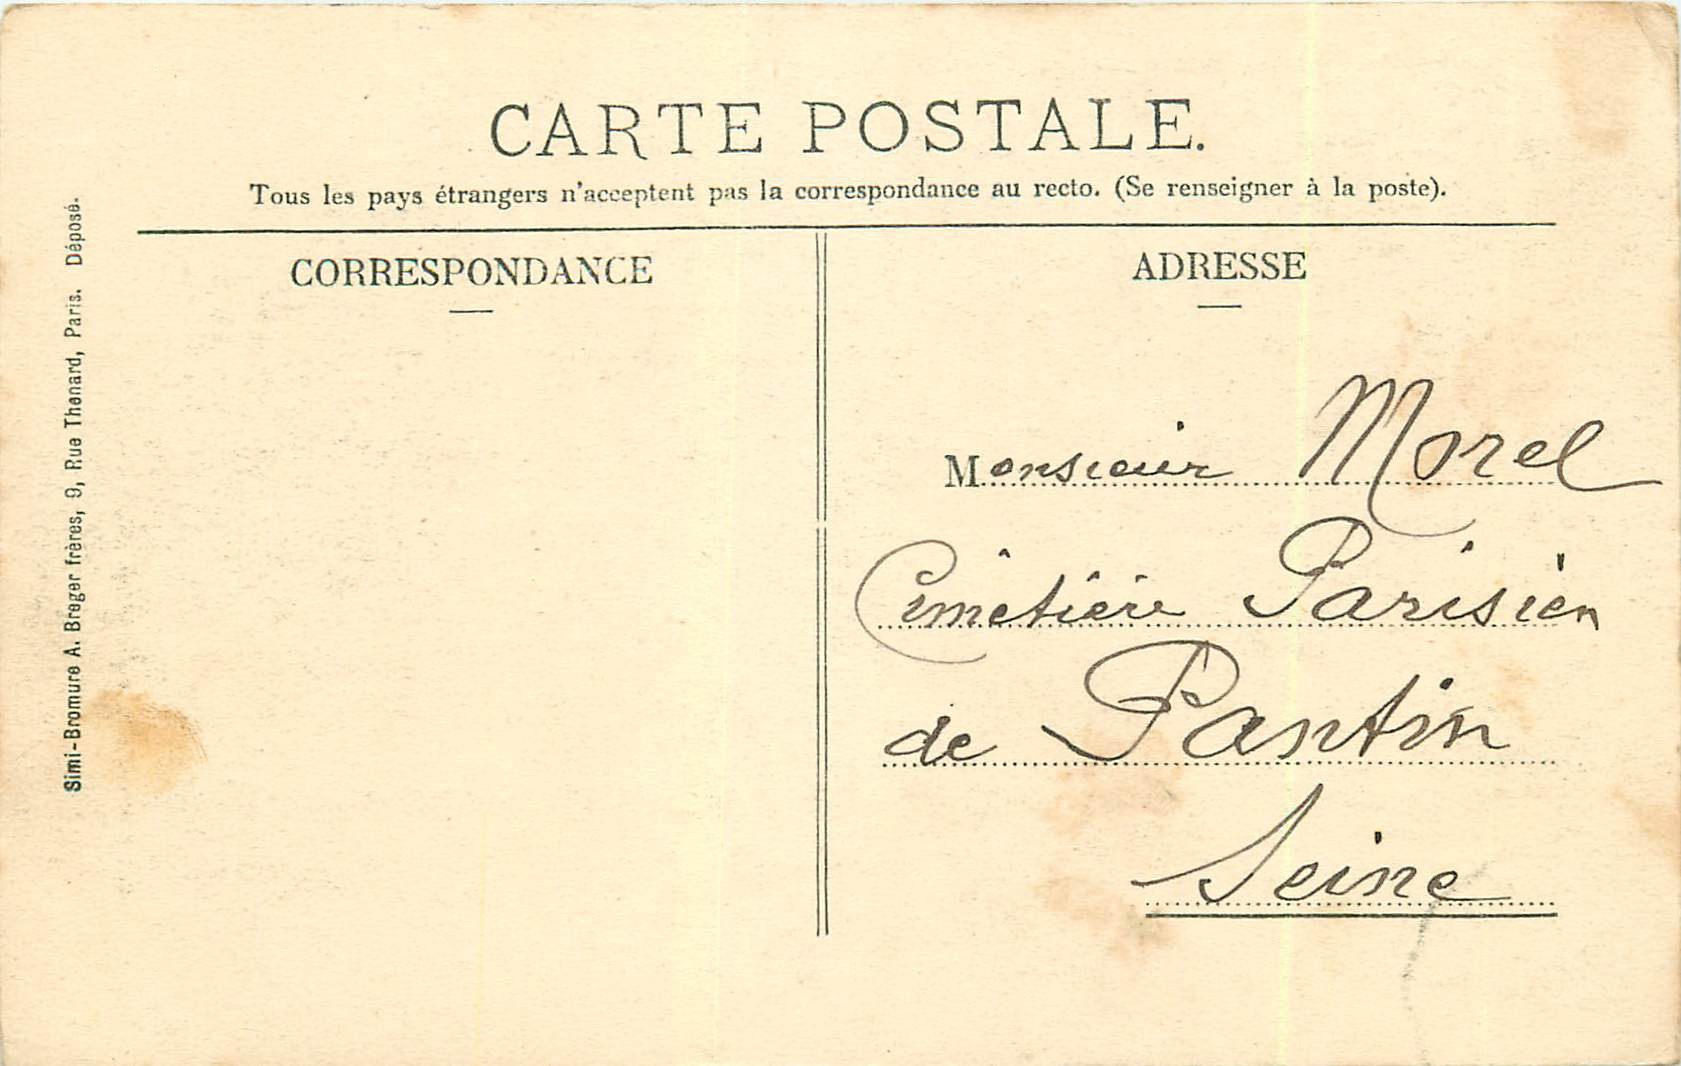 CARTE POSTALE.
Tous les pays étrangers n'acceptent pas la correspondance au recto. (Se renseigner à la poste).
CORRESPONDANCE
ADRESSE
Monsieur Morel
Cimetière Parisien
de Pantin
Seine
Simi-Bromure A. Breger frères, 9, Rue Thenard, Paris. Déposé.